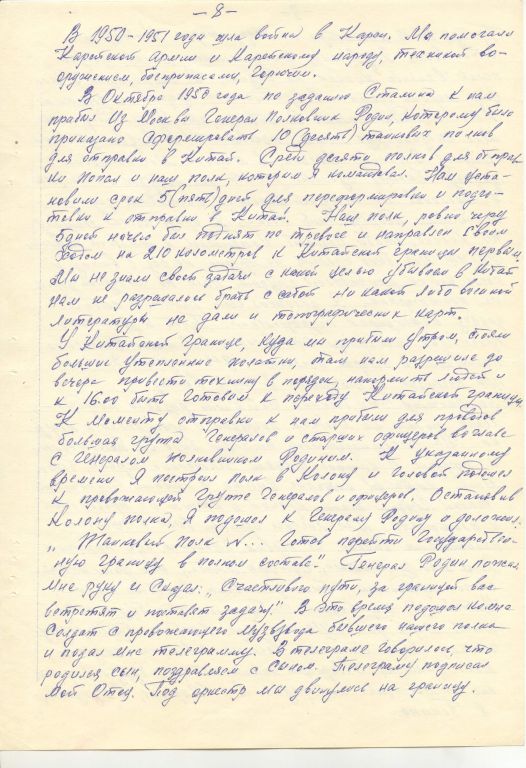 — 8 —
В 1950–1951 годы шла война в Кареи. Мы помогали
Карейской армии и Карейскому народу, техникой во-
оружением, боеприпасами, горючим.
В Октябре 1950 года по заданию Сталина к нам
прибыл из Москвы Генерал Полковник Родин, которому было
приказано сформировать 10 (десять) танковых полков
для отправки в Китай. Среди десяти полков для отправ
ки попал и наш полк, которым я командовал. Нам уста-
новили срок 5 (пять) дней для переформировки и подго-
товки к отправки в Китай. Наш полк, ровно через
5 дней ночью был поднят по тревоге и направлен своим
ходом на 210 километров к Китайской границы первым.
Мы не знали своей задачи с какой целью убываем в Китай
нам не разрешалось брать с собой ни какой либо военной
литературы не дали и топографических карт.
У Китайской границе, куда мы прибыли утром, стояли
большие утепленные палатки, там нам разрешили до
вечера провести технику в порядок, накормить людей и
к 16.00 быть готовым к переходу Китайской границы
К моменту отправки к нам прибыли для проводов
большая группа Генералов и старших офицеров во главе
с генералом полковником Родиным. К указанному
времени я построил полк в Колону и головой подошел
к провожающей группе генералов и офицеров. Остановив
Колону полка, Я подошол к Генералу Родину и доложил.
„Танковый полк N... Готов перейти Государствен-
ную границу в полном составе". Генерал Родин пожал
мне руку и сказал: „Счастливого пути, за границей вас
встретят и поставят задачу" В это время подошол ко мне
солдат с провожающего музвзвода бывшего нашего полка
и подал мне телеграмму. В телеграме говорилось, что
родился сын, поздравляем с сыном. Телеграму подписал
мой Отец. Под оркестр мы двинулись на границу.